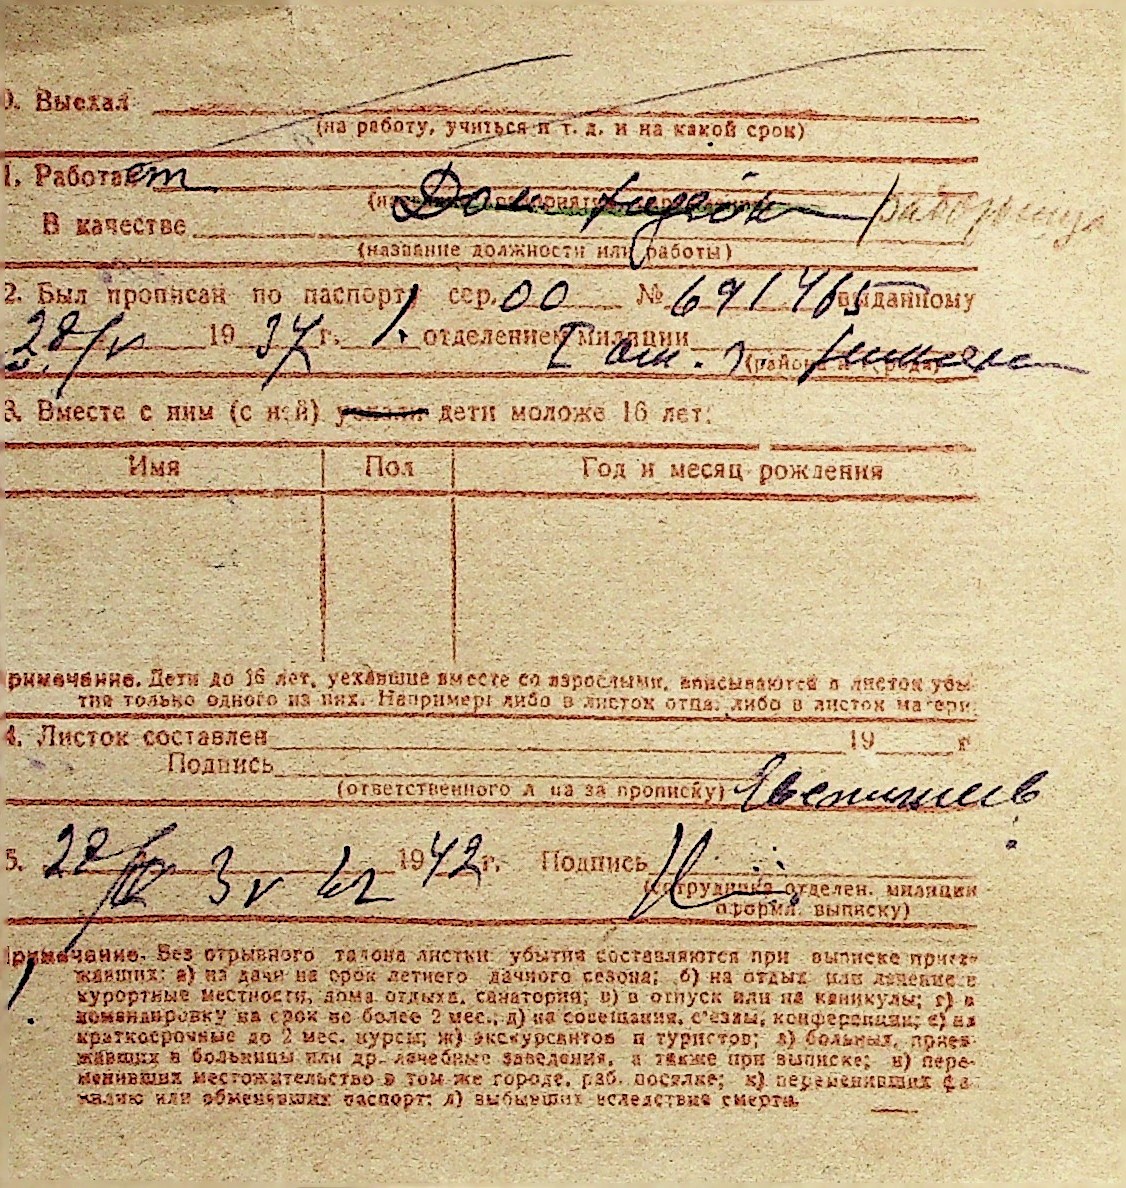 0. Выехал
(на работу, учиться и т. д. и на какой срок)
1. Работает
работница
В качестве
(название должности или работы)
2. Был прописан по паспорту сер. 00 № 691465 выданному
28/V 1937 г. 1. отделением милиции I
(района и города)
3. Вместе с ним (с ней) уехали дети моложе 16 лет:
Имя Пол Год и месяц рождения
римечание. Дети до 16 лет, уехавшие вместе со взрослыми, вписываются в листок убы-
тия только одного из них. Например: либо в листок отца, либо в листок матери.
4. Листок составлен 19 г
Подпись
(ответственного лица за прописку)
5. 28 1942 г. Подпись
(сотрудника отделен. милиции
оформл. выписку)
римечание. Без отрывного талона листки убытия составляются при выписке приез-
жавших: а) на дачи на срок летнего дачного сезона; б) на отдых или лечение в
курортные местности, дома отдыха, санатории; в) в отпуск или на каникулы; г) в
командировку на срок не более 2 мес.; д) на совещания, с'езды, конференции; е) на
краткосрочные до 2 мес. курсы; ж) экскурсантов и туристов; з) больных, приез-
жавших в больницы или др. лечебные заведения, а также при выписке; и) пере-
менивших местожительство в том же городе, раб. поселке; к) переменивших фа-
милию или обменявших паспорт; л) выбывших вследствие смерти.